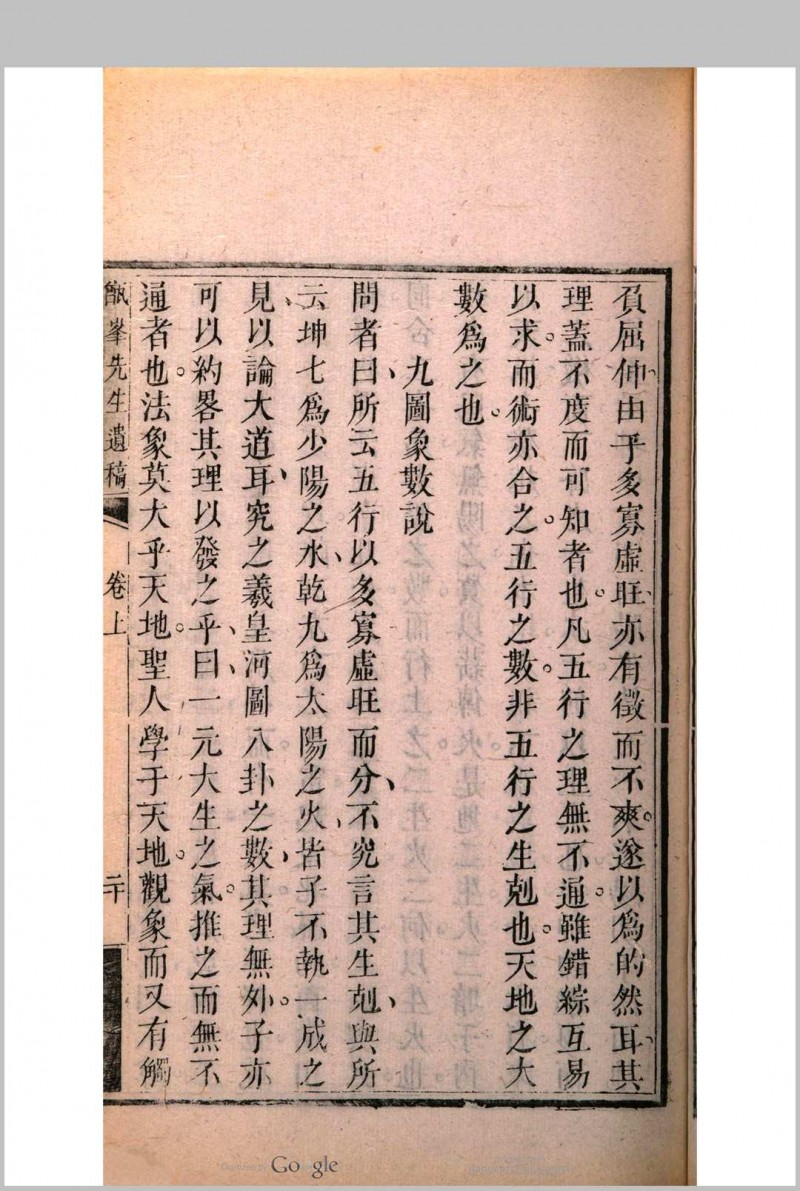 負屈伸由乎多寡虛旺亦有徵而不爽遂以爲的然耳其
理蓋不度而可知者也凡五行之理無不通雖錯綜互易
以求而術亦合之五行之數非五行之生剋也天地之大
數爲之也
九圖象數說
問者曰所云五行以多寡虛旺而分不究言其生剋與所
云坤七爲少陽之水乾九爲太陽之火皆子不執一成之
見以論大道耳究之羲皇河圖八卦之數其理無外子亦
可以約畧其理以發之乎曰一元大生之氣推之而無不
通者也法象莫大乎天地聖人學于天地觀象而又有觸
甑峯先生遺稿
卷上
二十
Google